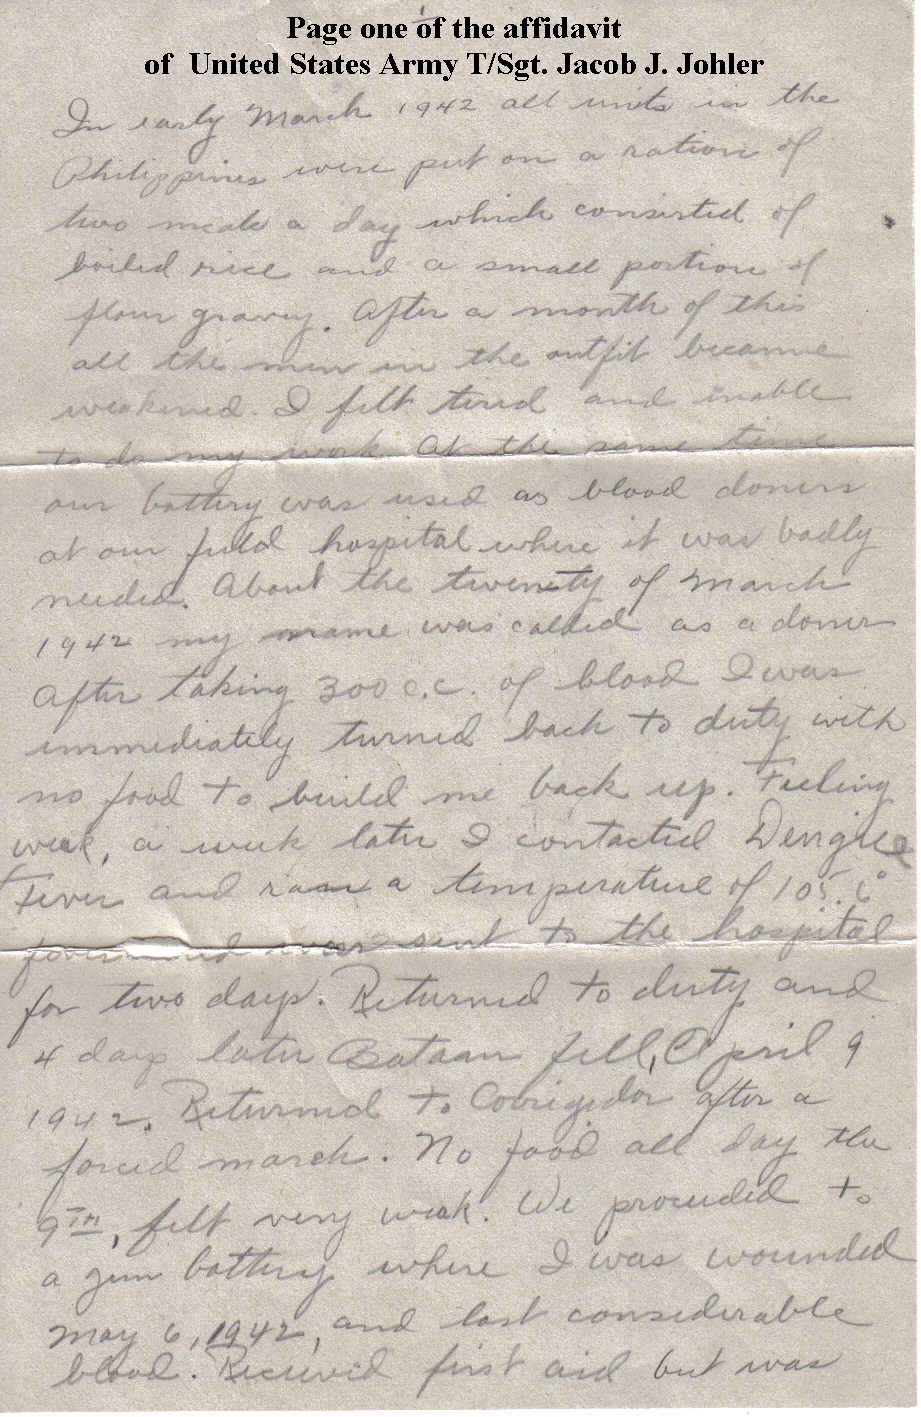 Page one of the affidavit
of United States Army T/Sgt. Jacob J. Johler
In early March 1942 all units in the
Philippines were put on a ration of
two meals a day which consisted of
boiled rice and a small portion of
flour gravey. After a month of this
all the men in the outfit became
weakened. I felt tired and unable
to do my work. At the same time
our battery was used as blood doners
at our field hospital where it was badly
needed. About the twenety of March
1942 my name was called as a doner
After taking 300 c.c. of blood I was
immediately turned back to duty with
no food to build me back up. Feeling
weak, a week later I contacted Dengue
Fever and ran a temperature of 105.6°
was sent to the hospital
for two days. Returned to duty and
4 days later Bataan fell, April 9
1942. Returned to Corrigedor after a
forced march. No food all day the
9TH, felt very weak. We proceeded to
a gun battery where I was wounded
May 6, 1942, and lost considerable
blood. Received first aid but was